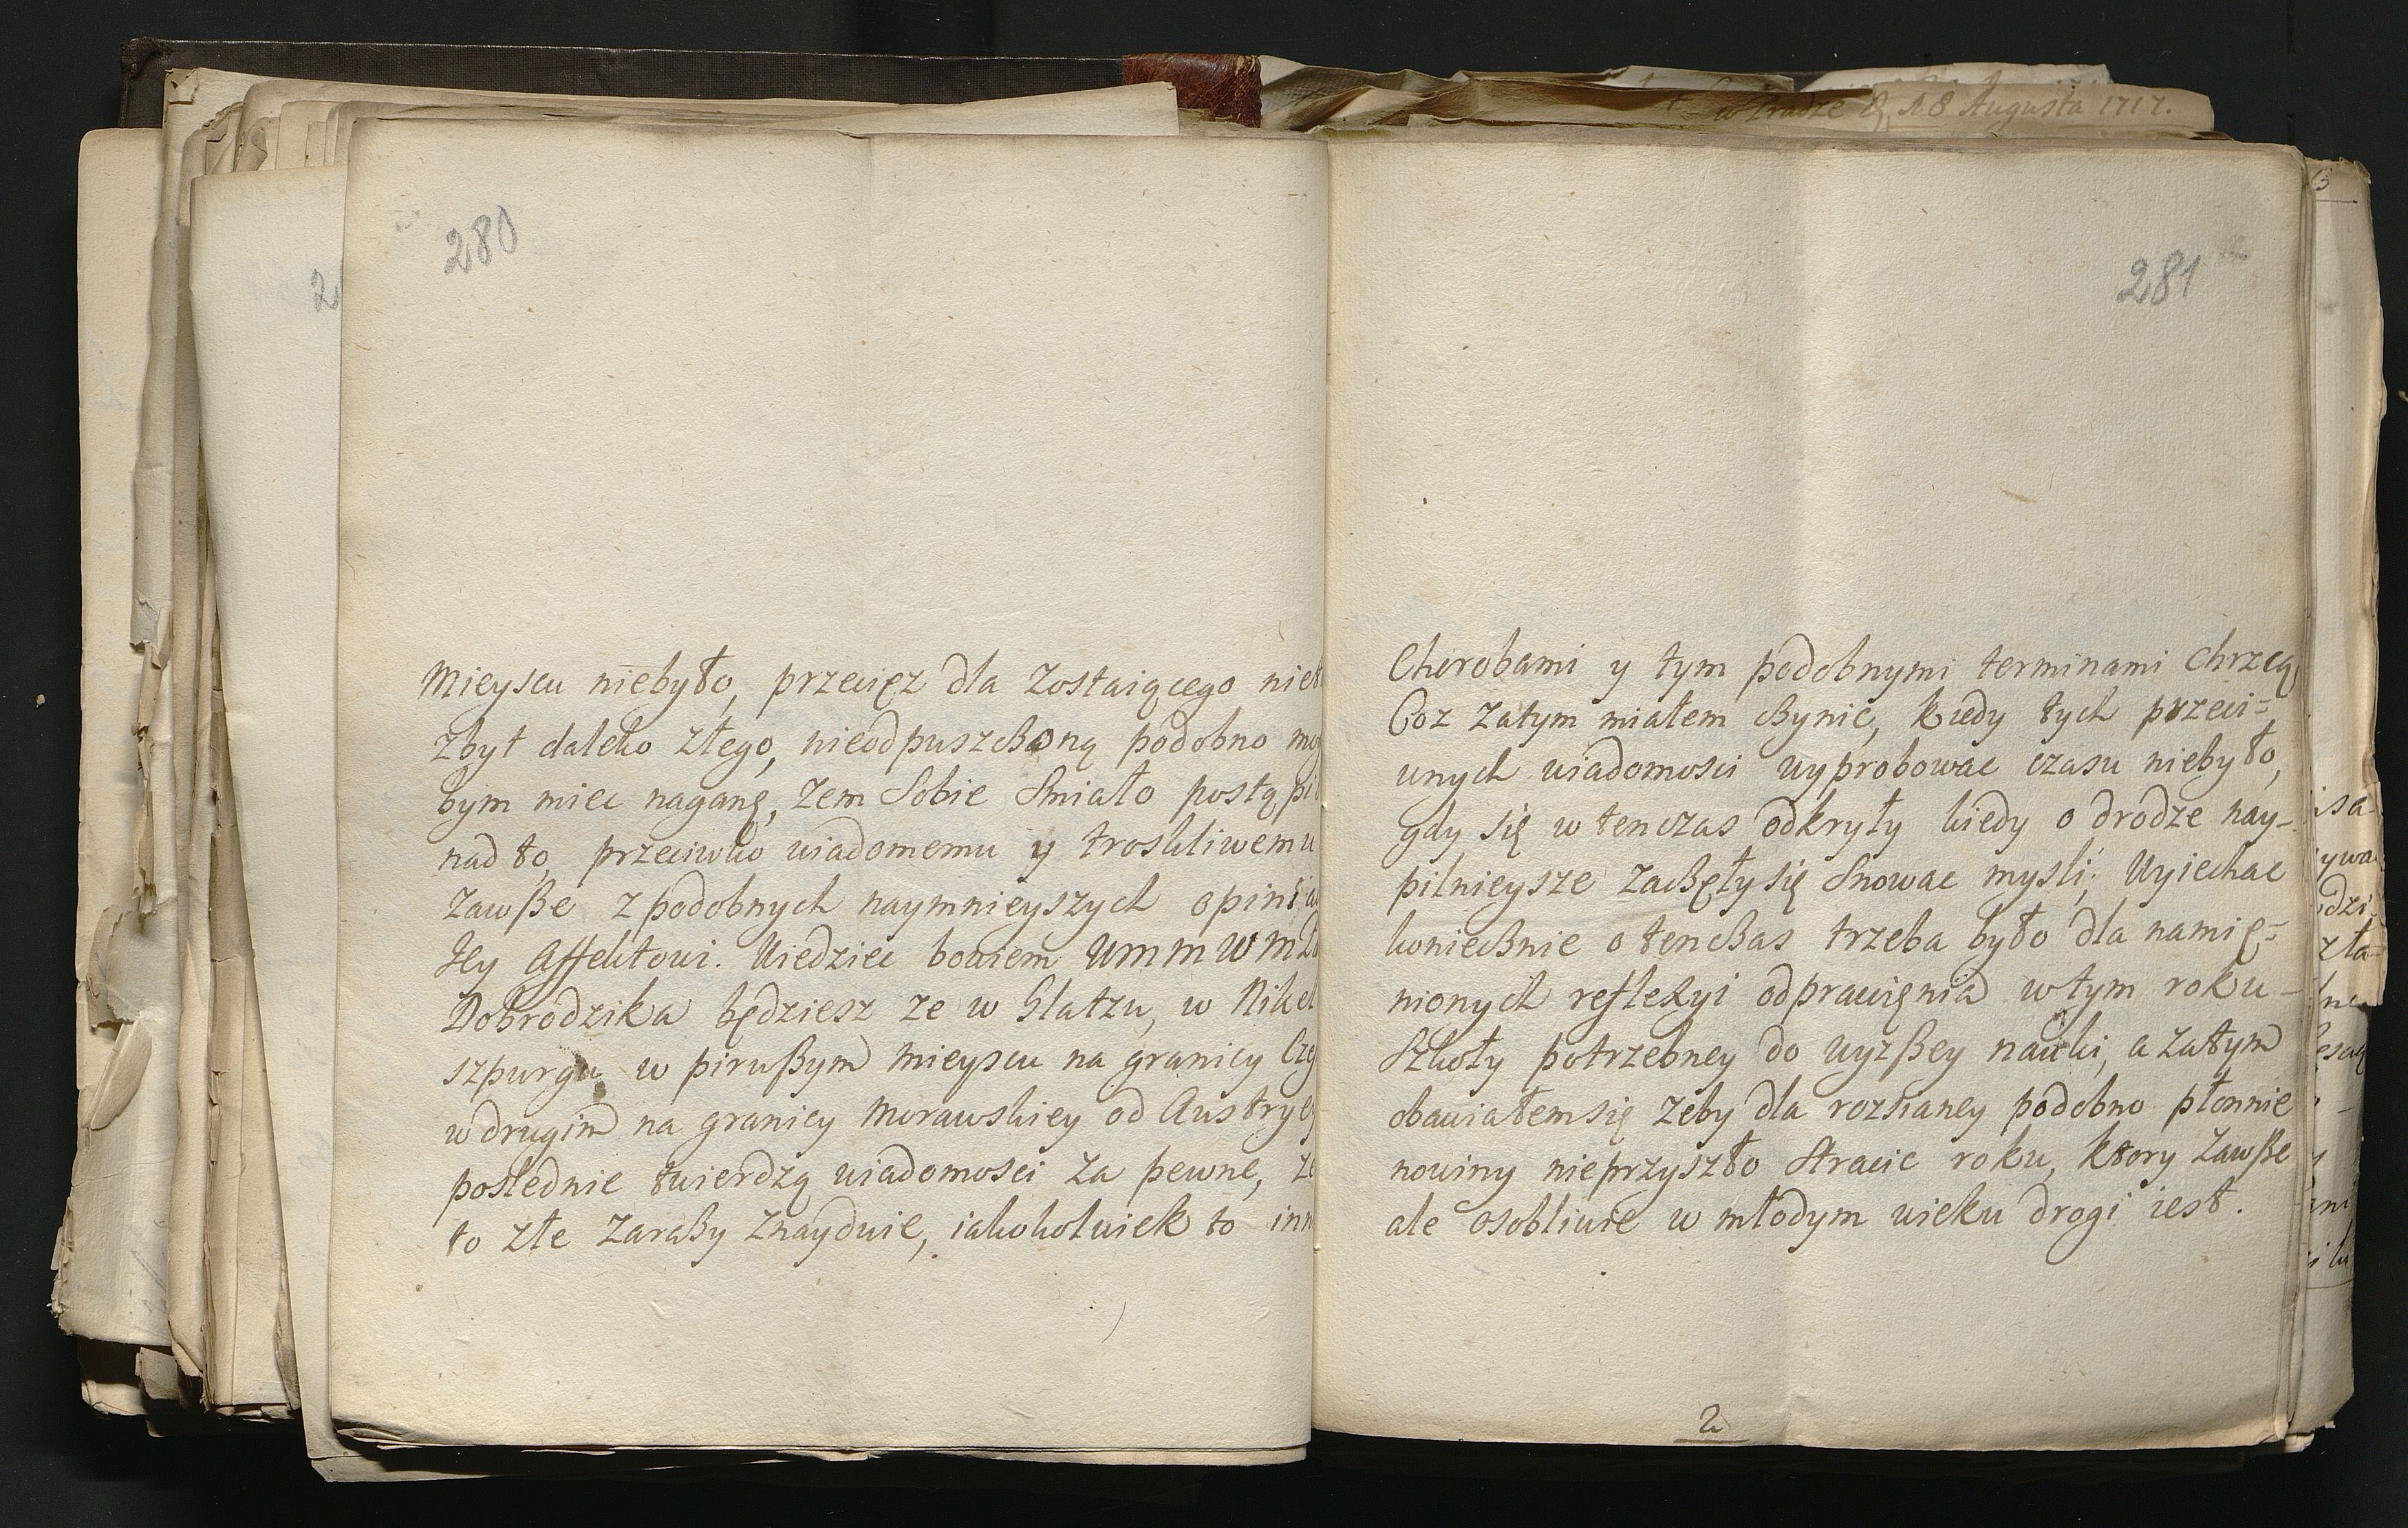 w Pradze D. 18 Augusta 1717.
280
Mieyscu niebyło, przecięz dla Zostaiącego
zbyt daleko złego, nieodpuszcßoną podobno
bym miec naganę, zem Sobie Smiało postąpił
nad to, przeciwko wiadomemu y troskliwemu
Zawße z podobnych naymnieyszych
Jey Affektowi. Wiedziec bowiem
Dobrodzika będziesz ze w Glatzu, w
szpurgu w pirwßym mieyscu na granicy
w drugim na granicy Morawskiey od
poslednie twierdzą wiadomosci za pewne,
to złe Zaraßy znayduie, iakokolwiek to
281
Chorobami y tym podobnymi terminami chrzcą
Coz zatym miałem cßynic, kiedy tych przeci=
wnych wiadomosci wyprobowac czasu niebyło,
gdy się w ten czas odkryły kiedy o drodze nay-
pilnieysze zacßęły się Snowac mysli; Wyiechac
koniecßnie o ten cßas trzeba było dla namię=
nionych reflexyi odprawięnia w tym roku-
Szkoły potrzebney do wyzßey nauki, a zatym
obawiałem się zeby dla rozsianey podobno płonnie
nowiny nieprzyszło Stracic roku, ktory Zawße
ale osobliwie w młodym wieku drogi iest.
2